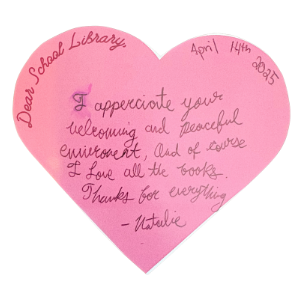 Dear School Library,
April 14th
2025
I apperciate your
welcoming and peaceful
enviroment, And of course
I Love all the books.
Thanks for everything
- Natalie